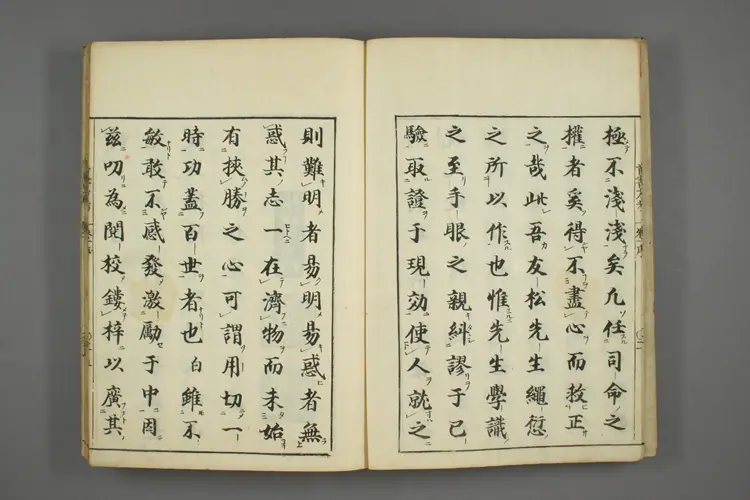 極不淺淺矣凡任司命之
權者奚得不盡心而救正
之哉此吾友松先生繩愆
之所以作也惟先生學識
之至手眼之親糾謬于已
驗取證于現効使人就之
則難明者易明易惑者無
惑其志一在濟物而未始
有挾勝之心可謂用切一
時功蓋百世者也白雖不
敏敢不感發激勵于中因
茲叨為閱校鏤梓以廣其